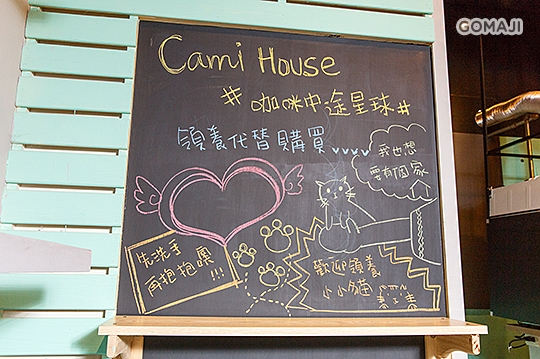 GOMAJI
Cami House
#咖咪中途星球#
領養代替購買
我也想
要有個家
先洗手
再抱抱噢
!!!
歡迎領養
小小貓